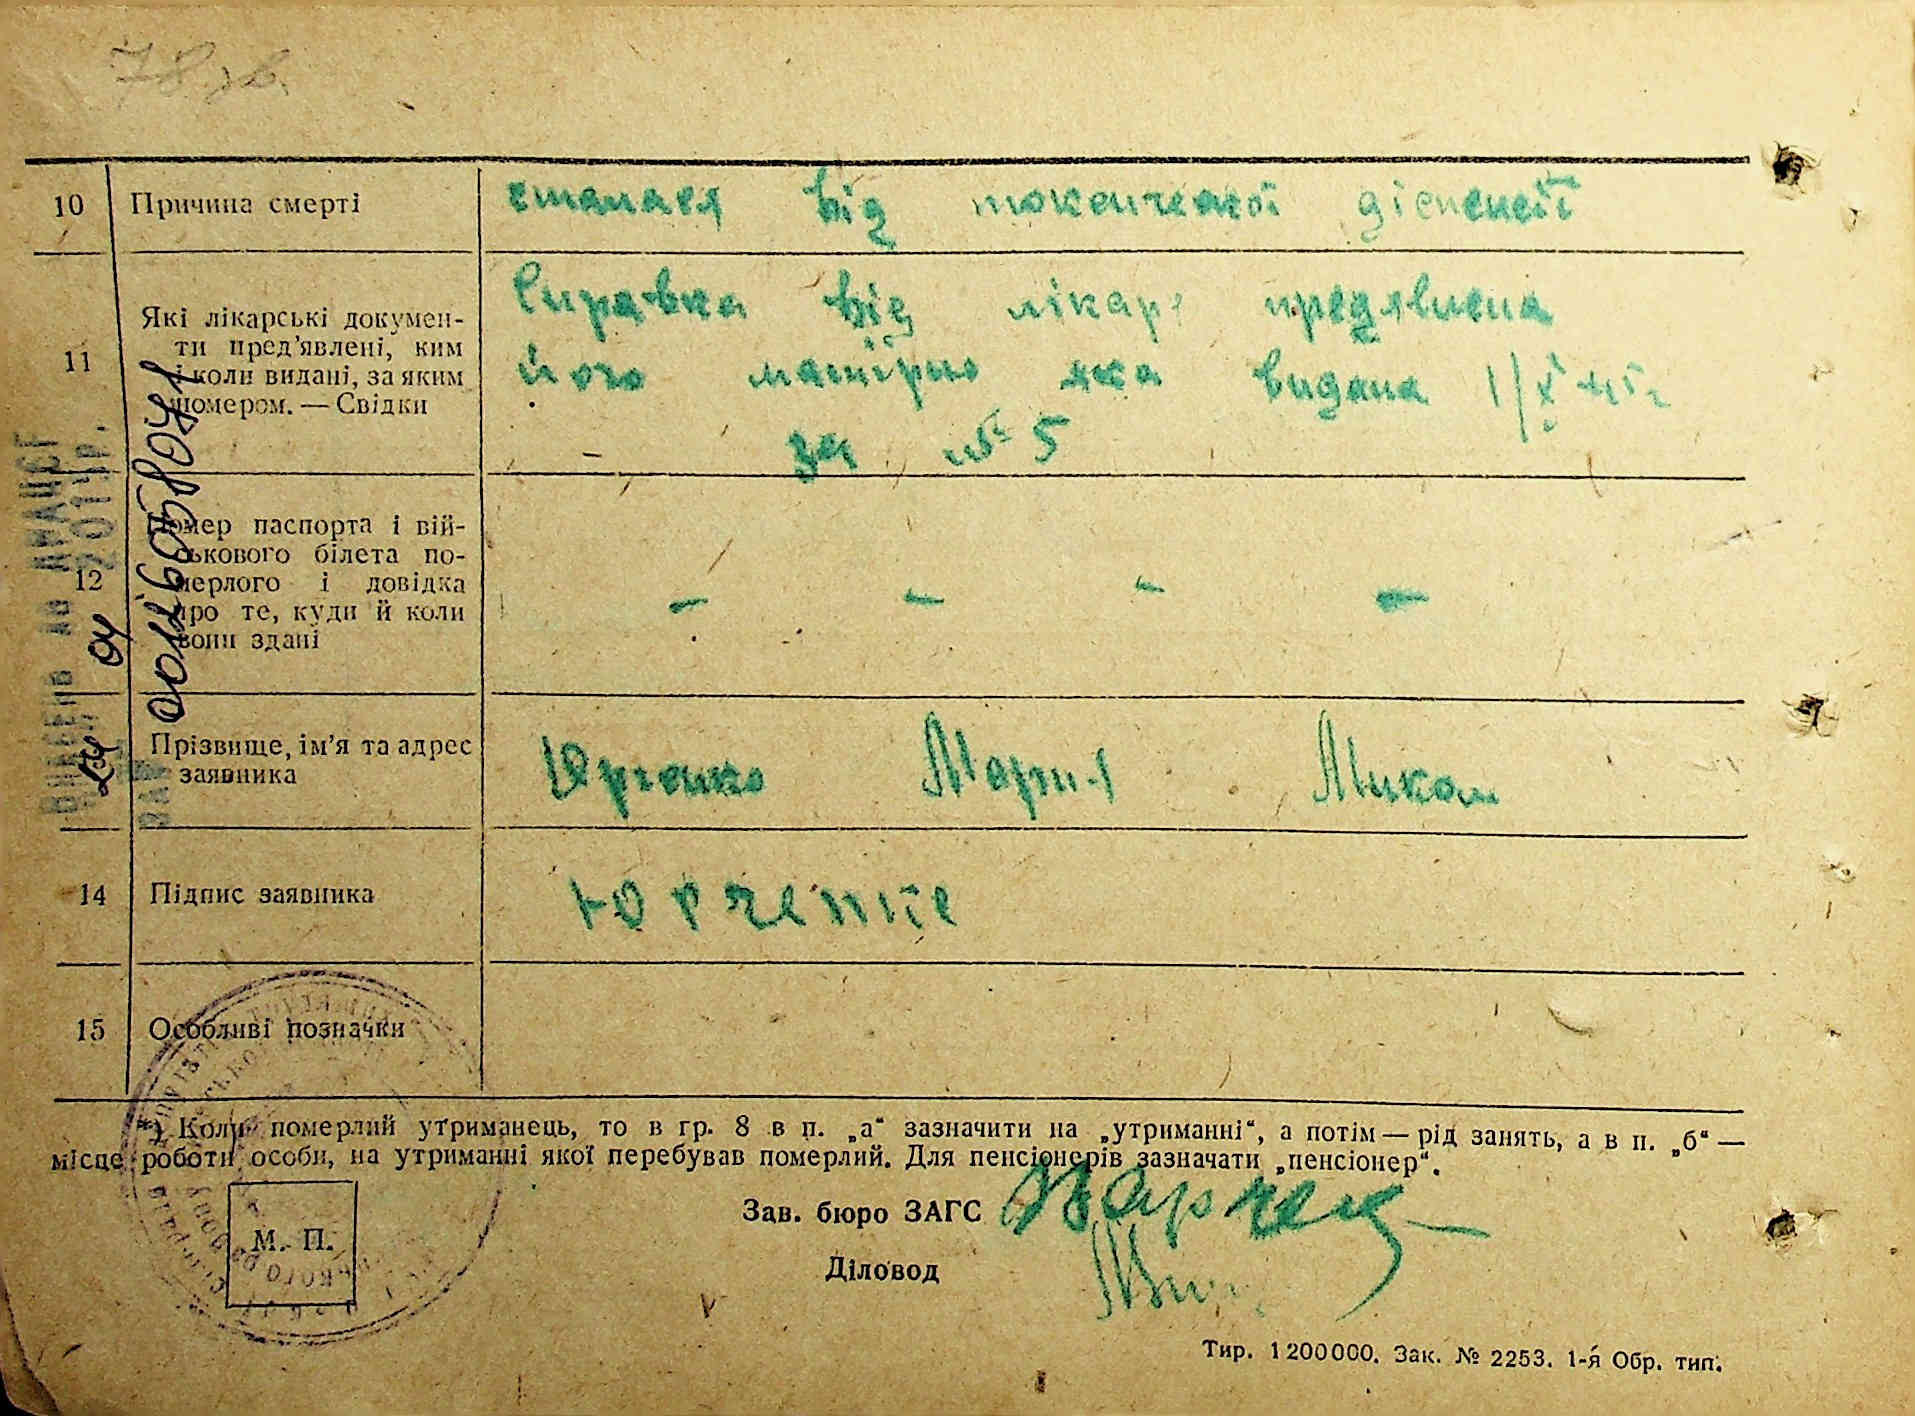 78 зв.
10 Причина смерті
сталася від токсичної діспенсії
11 Які лікарські докумен-
ти пред'явлені, ким
і коли видані, за яким
номером. — Свідки
Справка від лікаря предявлена
його матірю яка видана 1/X 45 г
за № 5
12 Номер паспорта і вій-
ськового білета по-
мерлого і довідка
про те, куди й коли
вони здані
— — — —
Прізвище, ім'я та адрес
заявника
Юрченко Марія Микол
14 Підпис заявника
Юрченко
15 Особливі позначки
*) Коли померлий утриманець, то в гр. 8 в п. „а“ зазначити на „утриманні“, а потім — рід занять, а в п. „б“ —
місце роботи особи, на утриманні якої перебував померлий. Для пенсіонерів зазначати „пенсіонер“.
Зав. бюро ЗАГС
М. П.
Діловод
Тир. 1200000. Зак. № 2253. 1-я Обр. тип.
внесено до ДРАЦСГ
24 04 2012 р.
00126058048